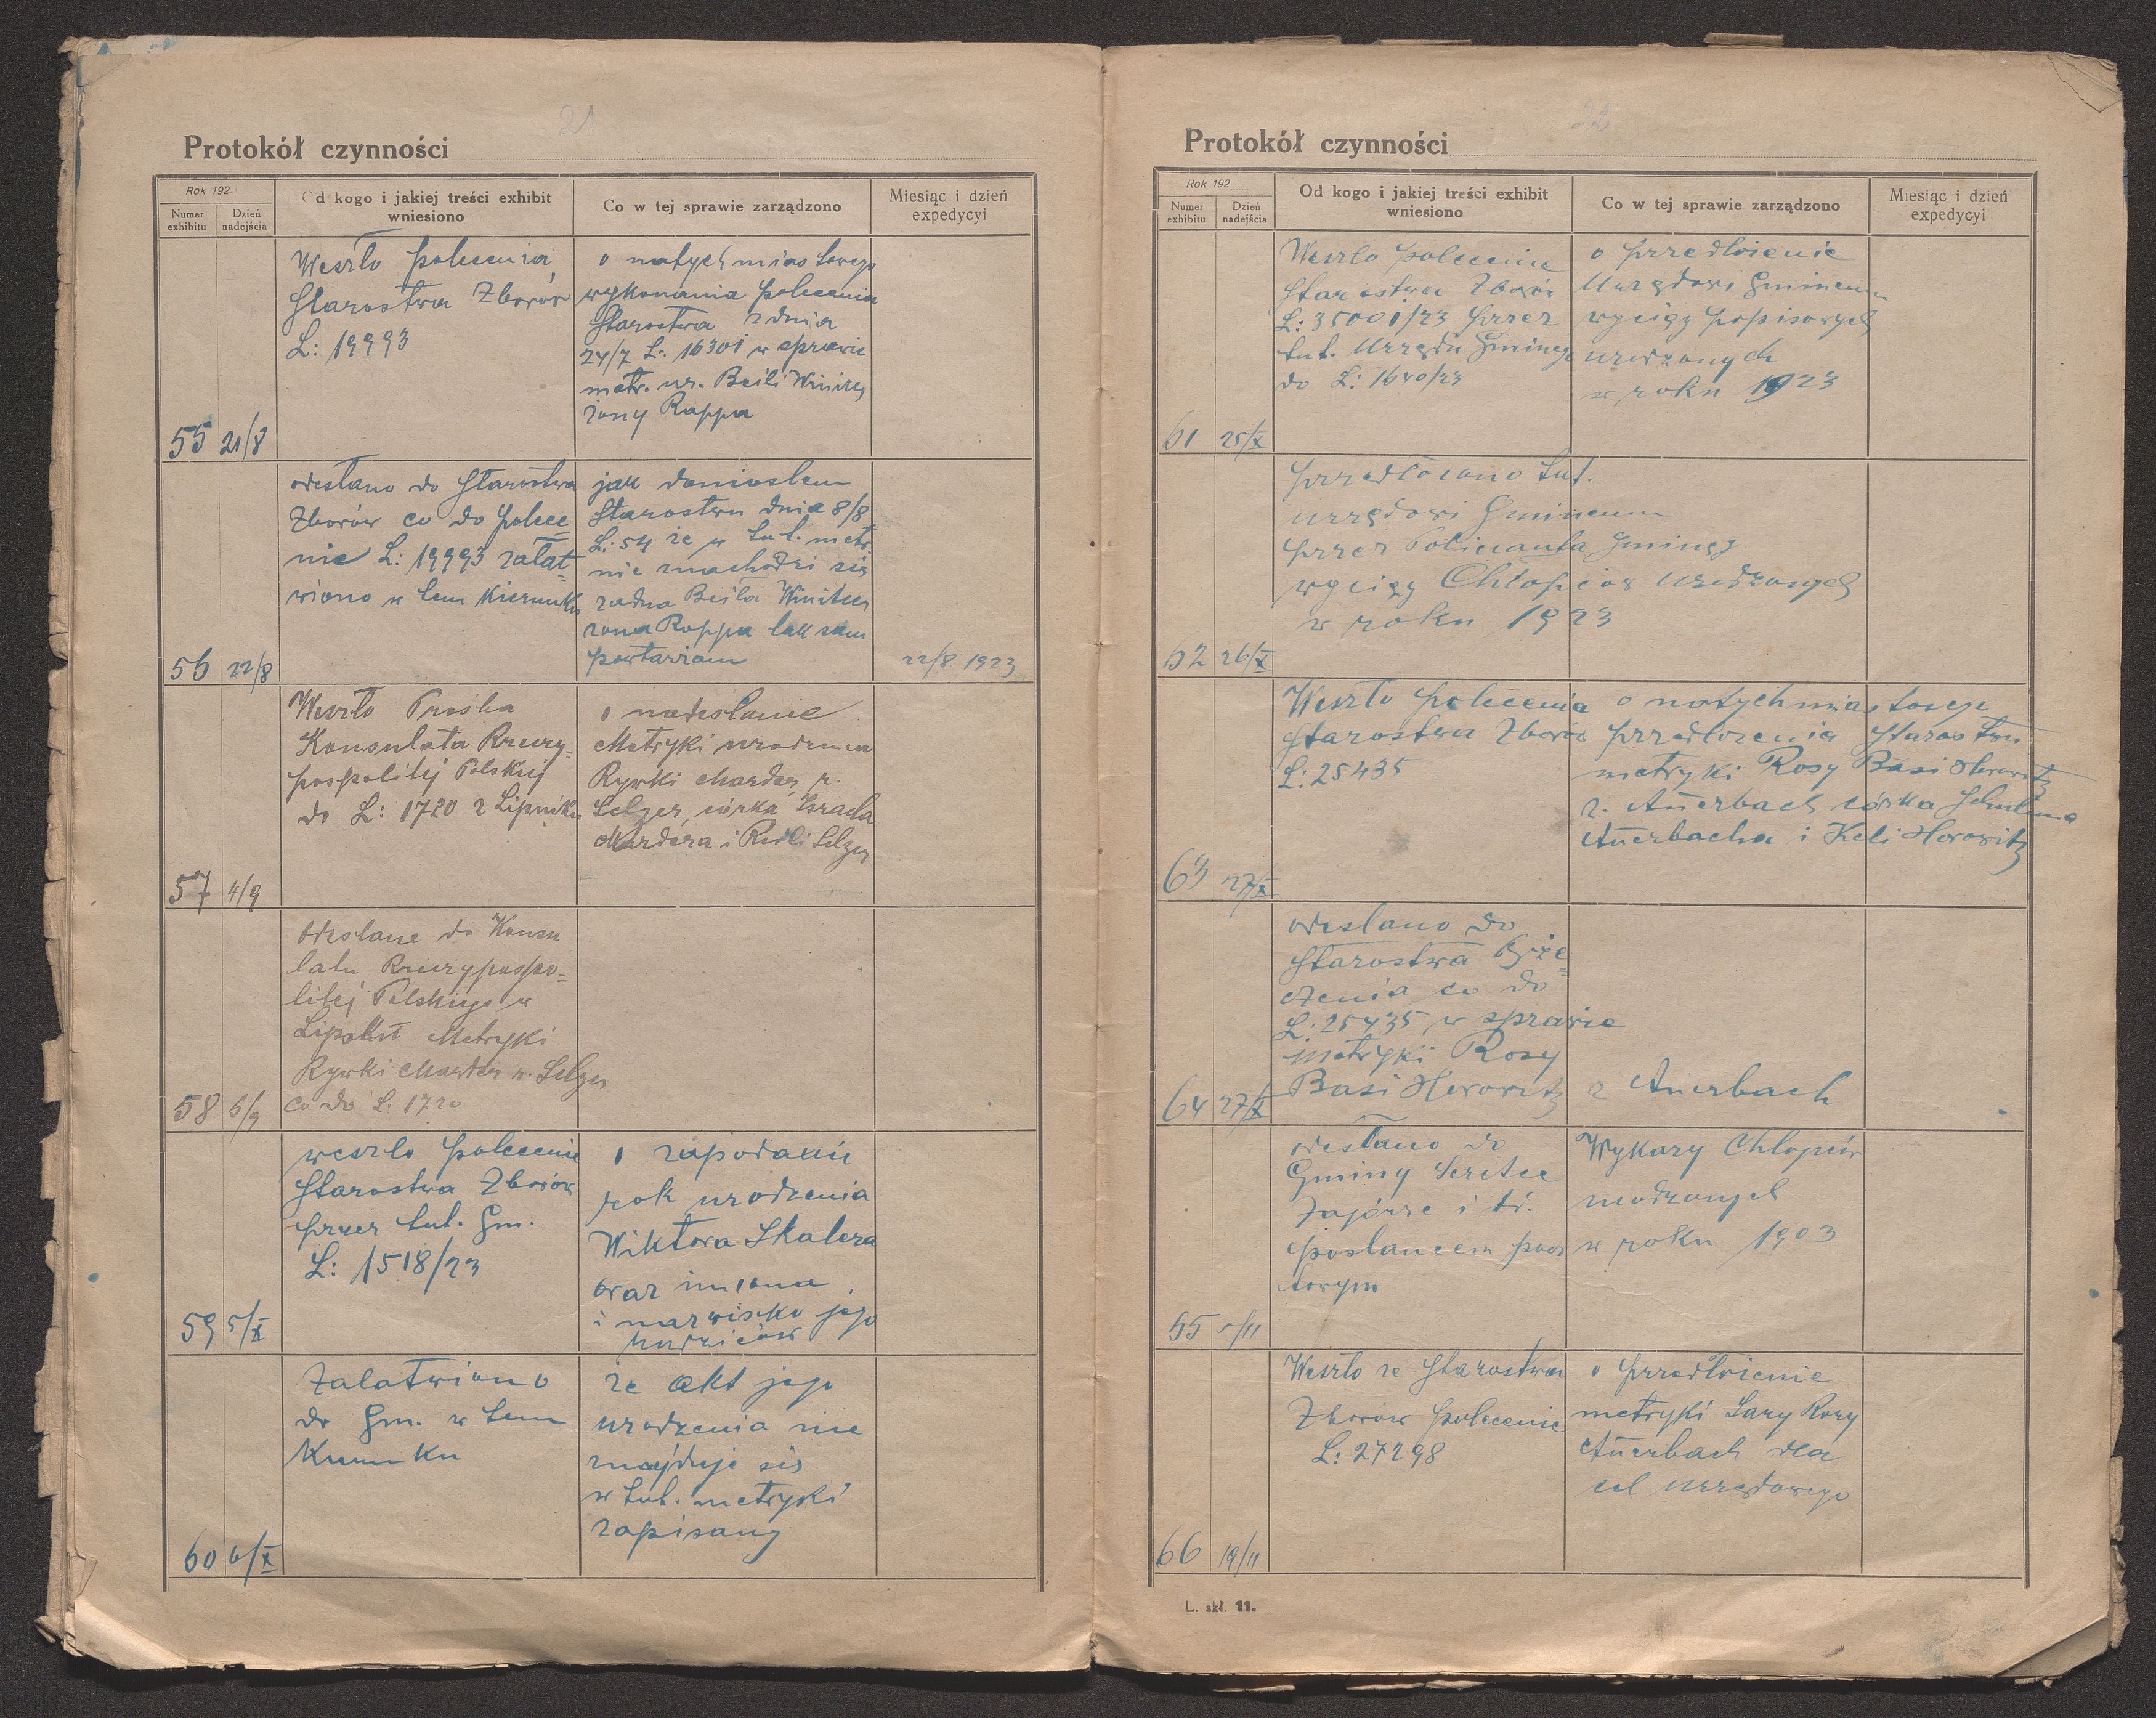 21
Protokół czynności
Rok 192
Numer exhibitu
Dzień nadejścia
Od kogo i jakiej treści exhibit
wniesiono
Co w tej sprawie zarządzono
Miesiąc i dzień
expedycyi
Weszło polecenia
Starostwa Zborów
L: 19993
o natychmiastowego
wykonania polecenia
Starostwa z dnia
24/7 L: 16301 w sprawie
metr. ur. Beili Winitz
żony Rappa
55 21/8
odesłano do Starostwa
Zborów co do polece=
nie L: 19993 załat=
wiono w tem kierunku
jak doniosłem
Starostwu dnia 8/8
L: 54 że w tut. metr.
nie znachodzi się
żadna Beila
żona Rappa tak sam
powtarzam
56 22/8
22/8 1923
Weszło Prośba
Konsulata Rzeczy=
pospolitej Polskiej
do L: 1720 z Lipniku
o nadesłanie
Metryki urodzenia
Rywki Marder r.
Selzer, córka Israela
Mardera i Reili Selzer
57 4/9
Odesłane do Konsu
latu Rzeczypospo=
litej Polskiego w
Metryki
Rywki Marder r. Selzer
co do L: 1720
58 5/9
weszło polecenie
Starostwa Zborów
przez tut. Gm.
L: 1518/23
o zapodanie
rok urodzenia
Wiktora Skalera
oraz imiona
i nazwisko jego
59 5/X
Załatwiono
do Gm. w tem
że akt jego
urodzenia nie
znajduje się
w tut. metryki
zapisany
60 6/X
22
Protokół czynności
Rok 192
Numer exhibitu
Dzień nadejścia
Od kogo i jakiej treści exhibit
wniesiono
Co w tej sprawie zarządzono
Miesiąc i dzień
expedycyi
Weszło polecenie
Starostwa Zborów
L: 35001/23 przez
tut. Urzędu Gminego
do L: 1640/23
o przedłożenie
Urzędowi Gminemu
wyciąg popisowych
urodzonych
w roku 1923
61 25/X
przedłożono tut.
urzędowi Gminemu
przez Policianta
wyciąg Chłopców urodzonych
w roku 1923
62 26/X
Weszło polecenia
Starostwa Zborów
L: 25435
o natychmiastowego
przedłożenia Starostwu
metryki Rosy Basi Horowitz
r. Auerbach córka Schulima
Auerbacha i Keli Horowitz
63 27/X
odesłano do
Starostwa
co do
L: 25435 w sprawie
metryki Rosy
Basi Horowitz r Auerbach
64 27/X
odesłano do
Gminy
i t.
posłancem
Wykazy Chłopców
urodzonych
w roku 1903
65 5/11
Weszło ze Starostwa
Zborów polecenie
L: 27298
o przedłożenie
metryki Sary Rozy
Auerbach dla
cel urzędowego
66 19/11
L. skł. 11.